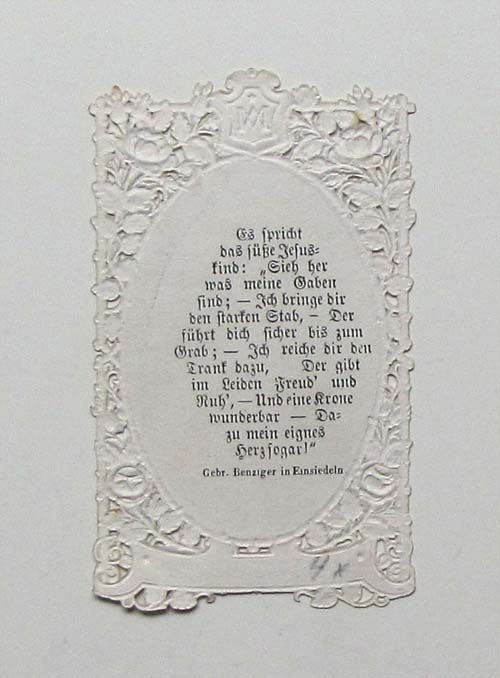 Es spricht
das süße Jesus=
kind: „Sieh her
was meine Gaben
sind; — Ich bringe dir
den starken Stab, – Der
führt dich sicher bis zum
Grab; — Ich reiche dir den
Trank dazu, Der gibt
im Leiden Freud' und
Ruh', — Und eine Krone
wunderbar — Da=
zu mein eignes
Herz sogar!“
Gebr. Benziger in Einsiedeln
4 x